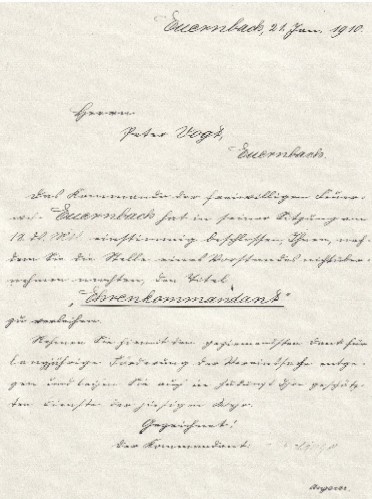 Euernbach, 21. Jan. 1910.
Herrn
Peter Vogt,
Euernbach.
Das Kommando der freiwilligen Feuer-
Euernbach hat in seiner Sitzung am
18. ds. Mts. einstimmig beschlossen, Ihnen, nach-
dem Sie die Stelle eines Vorstandes nicht über-
nehmen möchten, den Titel
„Ehrenkommandant"
zu verleihen.
Nehmen Sie hiermit den geziemendsten Dank für
langjährige Förderung der Vereinssache entge-
gen und leihen Sie auch in Zukunft Ihre geschätz-
ten Dienste der hiesigen Wehr.
Gezeichnet!
Der Kommandant